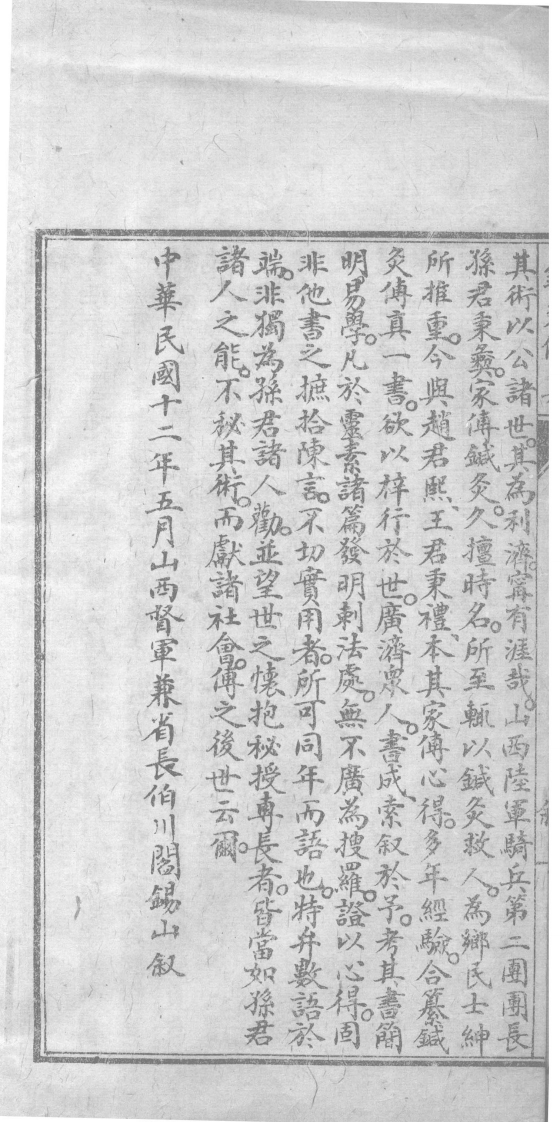 其術以公諸世。其為利濟。寧有涯哉。山西陸軍騎兵第二團團長
孫君秉彝。家傳鍼灸。久擅時名。所至輒以鍼灸救人。為鄉民士紳
所推重。今與趙君熙、王君秉禮、本其家傳心得。多年經驗。合纂鍼
灸傳真一書。欲以梓行於世。廣濟眾人。書成、索叙於予。考其書簡
明易學。凡於靈素諸篇發明刺法處。無不廣為搜羅。證以心得。固
非他書之摭拾陳言。不切實用者。所可同年而語也。特弁數語於
端。非獨為孫君諸人勸。並望世之懷抱秘授專長者。皆當如孫君
諸人之能。不秘其術。而獻諸社會。傳之後世云爾。
中華民國十二年五月山西督軍兼省長伯川閻錫山叙